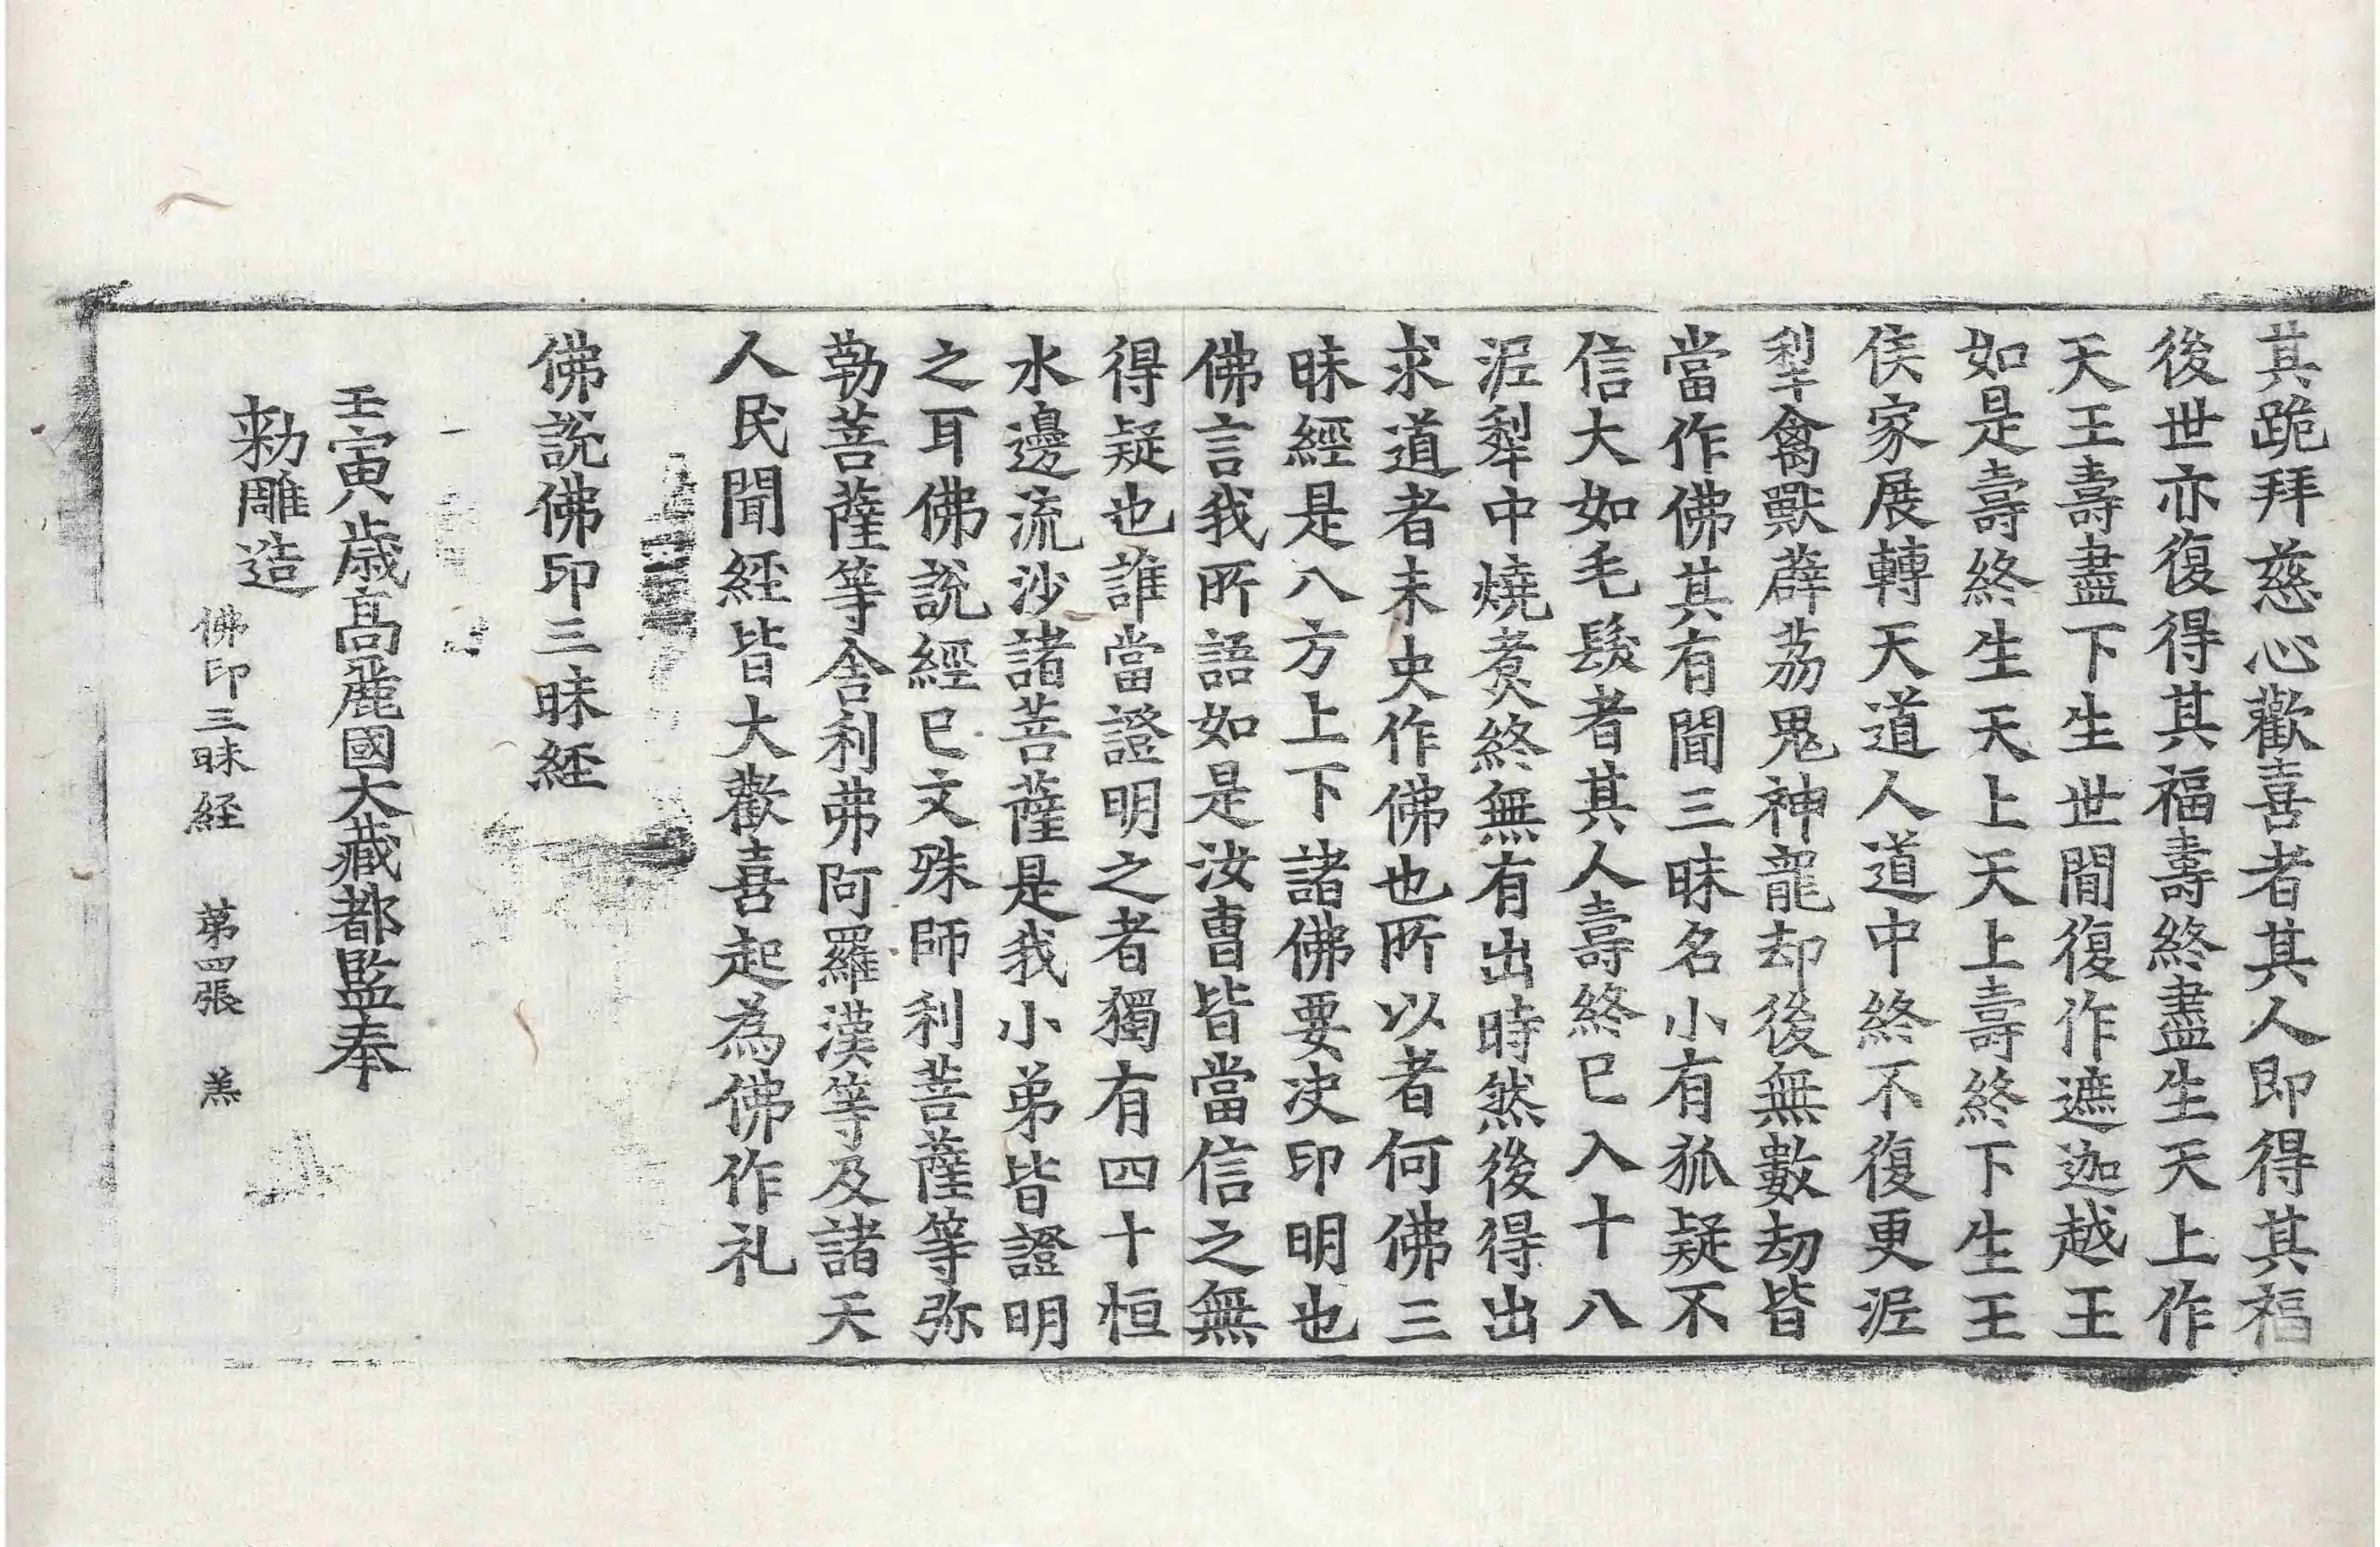 其跪拜慈心歡喜者其人即得其福
後世亦復得其福壽終盡生天上作
天王壽盡下生世閒復作遮迦越王
如是壽終生天上天上壽終下生王
侯家展轉天道人道中終不復更泥
犁禽獸薜荔鬼神龍却後無數劫皆
當作佛其有聞三昧名小有狐疑不
信大如毛髮者其人壽終已入十八
泥犁中燒煑終無有出時然後得出
求道者未央作佛也所以者何佛三
昧經是八方上下諸佛要决印明也
佛言我所語如是汝曹皆當信之無
得疑也誰當證明之者獨有四十恒
水邊流沙諸菩薩是我小弟皆證明
之耳佛說經已文殊師利菩薩等弥
勒菩薩等舍利弗阿羅漢等及諸天
人民聞經皆大歡喜起為佛作礼
佛說佛印三昧經
壬寅歳高麗國大藏都監奉
勅雕造
佛印三昧経 第四張 羔